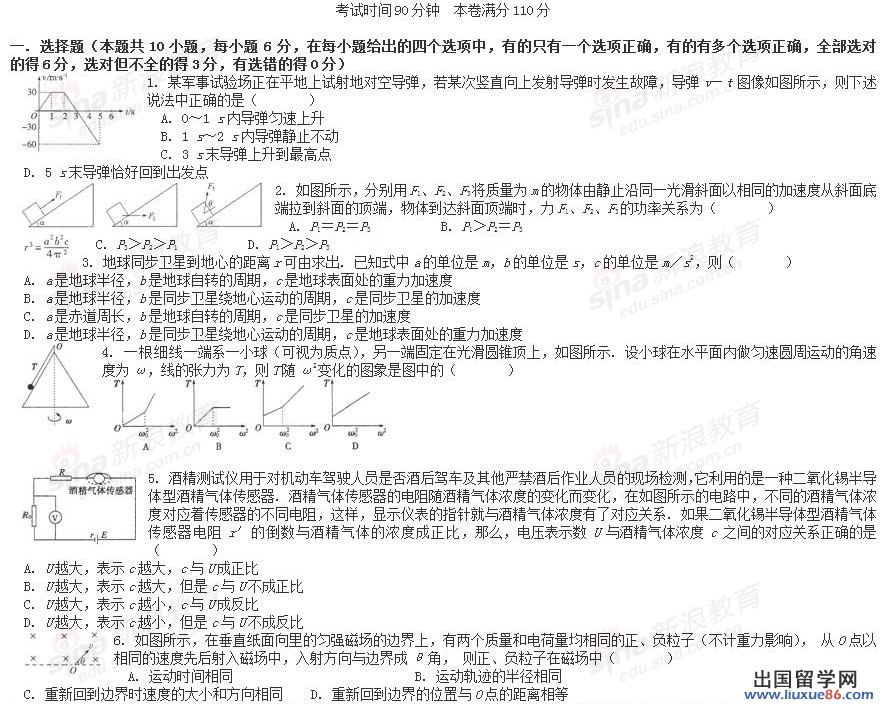 考试时间90分钟 本卷满分110分
一．选择题（本题共10小题，每小题6分，在每小题给出的四个选项中，有的只有一个选项正确，有的有多个选项正确，全部选对
的得6分，选对但不全的得3分，有选错的得0分）
v/m·s⁻¹
30
O 1 2 3 4 5 6 t/s
-30
-60
1．某军事试验场正在平地上试射地对空导弹，若某次竖直向上发射导弹时发生故障，导弹v－t图像如图所示，则下述
说法中正确的是（ ）
A．0～1 s内导弹匀速上升
B．1 s～2 s内导弹静止不动
C．3 s末导弹上升到最高点
D．5 s末导弹恰好回到出发点
F₁ α F₂ α F₃ θ α
2．如图所示，分别用F₁、F₂、F₃将质量为m的物体由静止沿同一光滑斜面以相同的加速度从斜面底
端拉到斜面的顶端，物体到达斜面顶端时，力F₁、F₂、F₃的功率关系为（ ）
A．P₁=P₂=P₃ B．P₁＞P₂=P₃
C．P₃＞P₂＞P₁ D．P₁＞P₂＞P₃
r³=a²b²c/4π²
3．地球同步卫星到地心的距离r可由求出．已知式中a的单位是m，b的单位是s，c的单位是m／s²，则（ ）
A．a是地球半径，b是地球自转的周期，c是地球表面处的重力加速度
B．a是地球半径，b是同步卫星绕地心运动的周期，c是同步卫星的加速度
C．a是赤道周长，b是地球自转的周期，c是同步卫星的加速度
D．a是地球半径，b是同步卫星绕地心运动的周期，c是地球表面处的重力加速度
O
T
ω
4．一根细线一端系一小球（可视为质点），另一端固定在光滑圆锥顶上，如图所示．设小球在水平面内做匀速圆周运动的角速
度为ω，线的张力为T，则T随ω²变化的图象是图中的（ ）
T T T T
O ω₀² ω² O ω₀² ω² O ω₀² ω² O ω²
A B C D
R
酒精气体传感器
R₀ V
r E
5．酒精测试仪用于对机动车驾驶人员是否酒后驾车及其他严禁酒后作业人员的现场检测，它利用的是一种二氧化锡半导
体型酒精气体传感器．酒精气体传感器的电阻随酒精气体浓度的变化而变化，在如图所示的电路中，不同的酒精气体浓
度对应着传感器的不同电阻，这样，显示仪表的指针就与酒精气体浓度有了对应关系．如果二氧化锡半导体型酒精气体
传感器电阻r′的倒数与酒精气体的浓度成正比，那么，电压表示数U与酒精气体浓度c之间的对应关系正确的是
（ ）
A．U越大，表示c越大，c与U成正比
B．U越大，表示c越大，但是c与U不成正比
C．U越大，表示c越小，c与U成反比
D．U越大，表示c越小，但是c与U不成反比
6．如图所示，在垂直纸面向里的匀强磁场的边界上，有两个质量和电荷量均相同的正、负粒子（不计重力影响），从O点以
相同的速度先后射入磁场中，入射方向与边界成θ角，则正、负粒子在磁场中（ ）
A．运动时间相同 B．运动轨迹的半径相同
C．重新回到边界时速度的大小和方向相同 D．重新回到边界的位置与O点的距离相等
sina新浪教育
edu.sina.com.cn
出国留学网
www.liuxue86.com